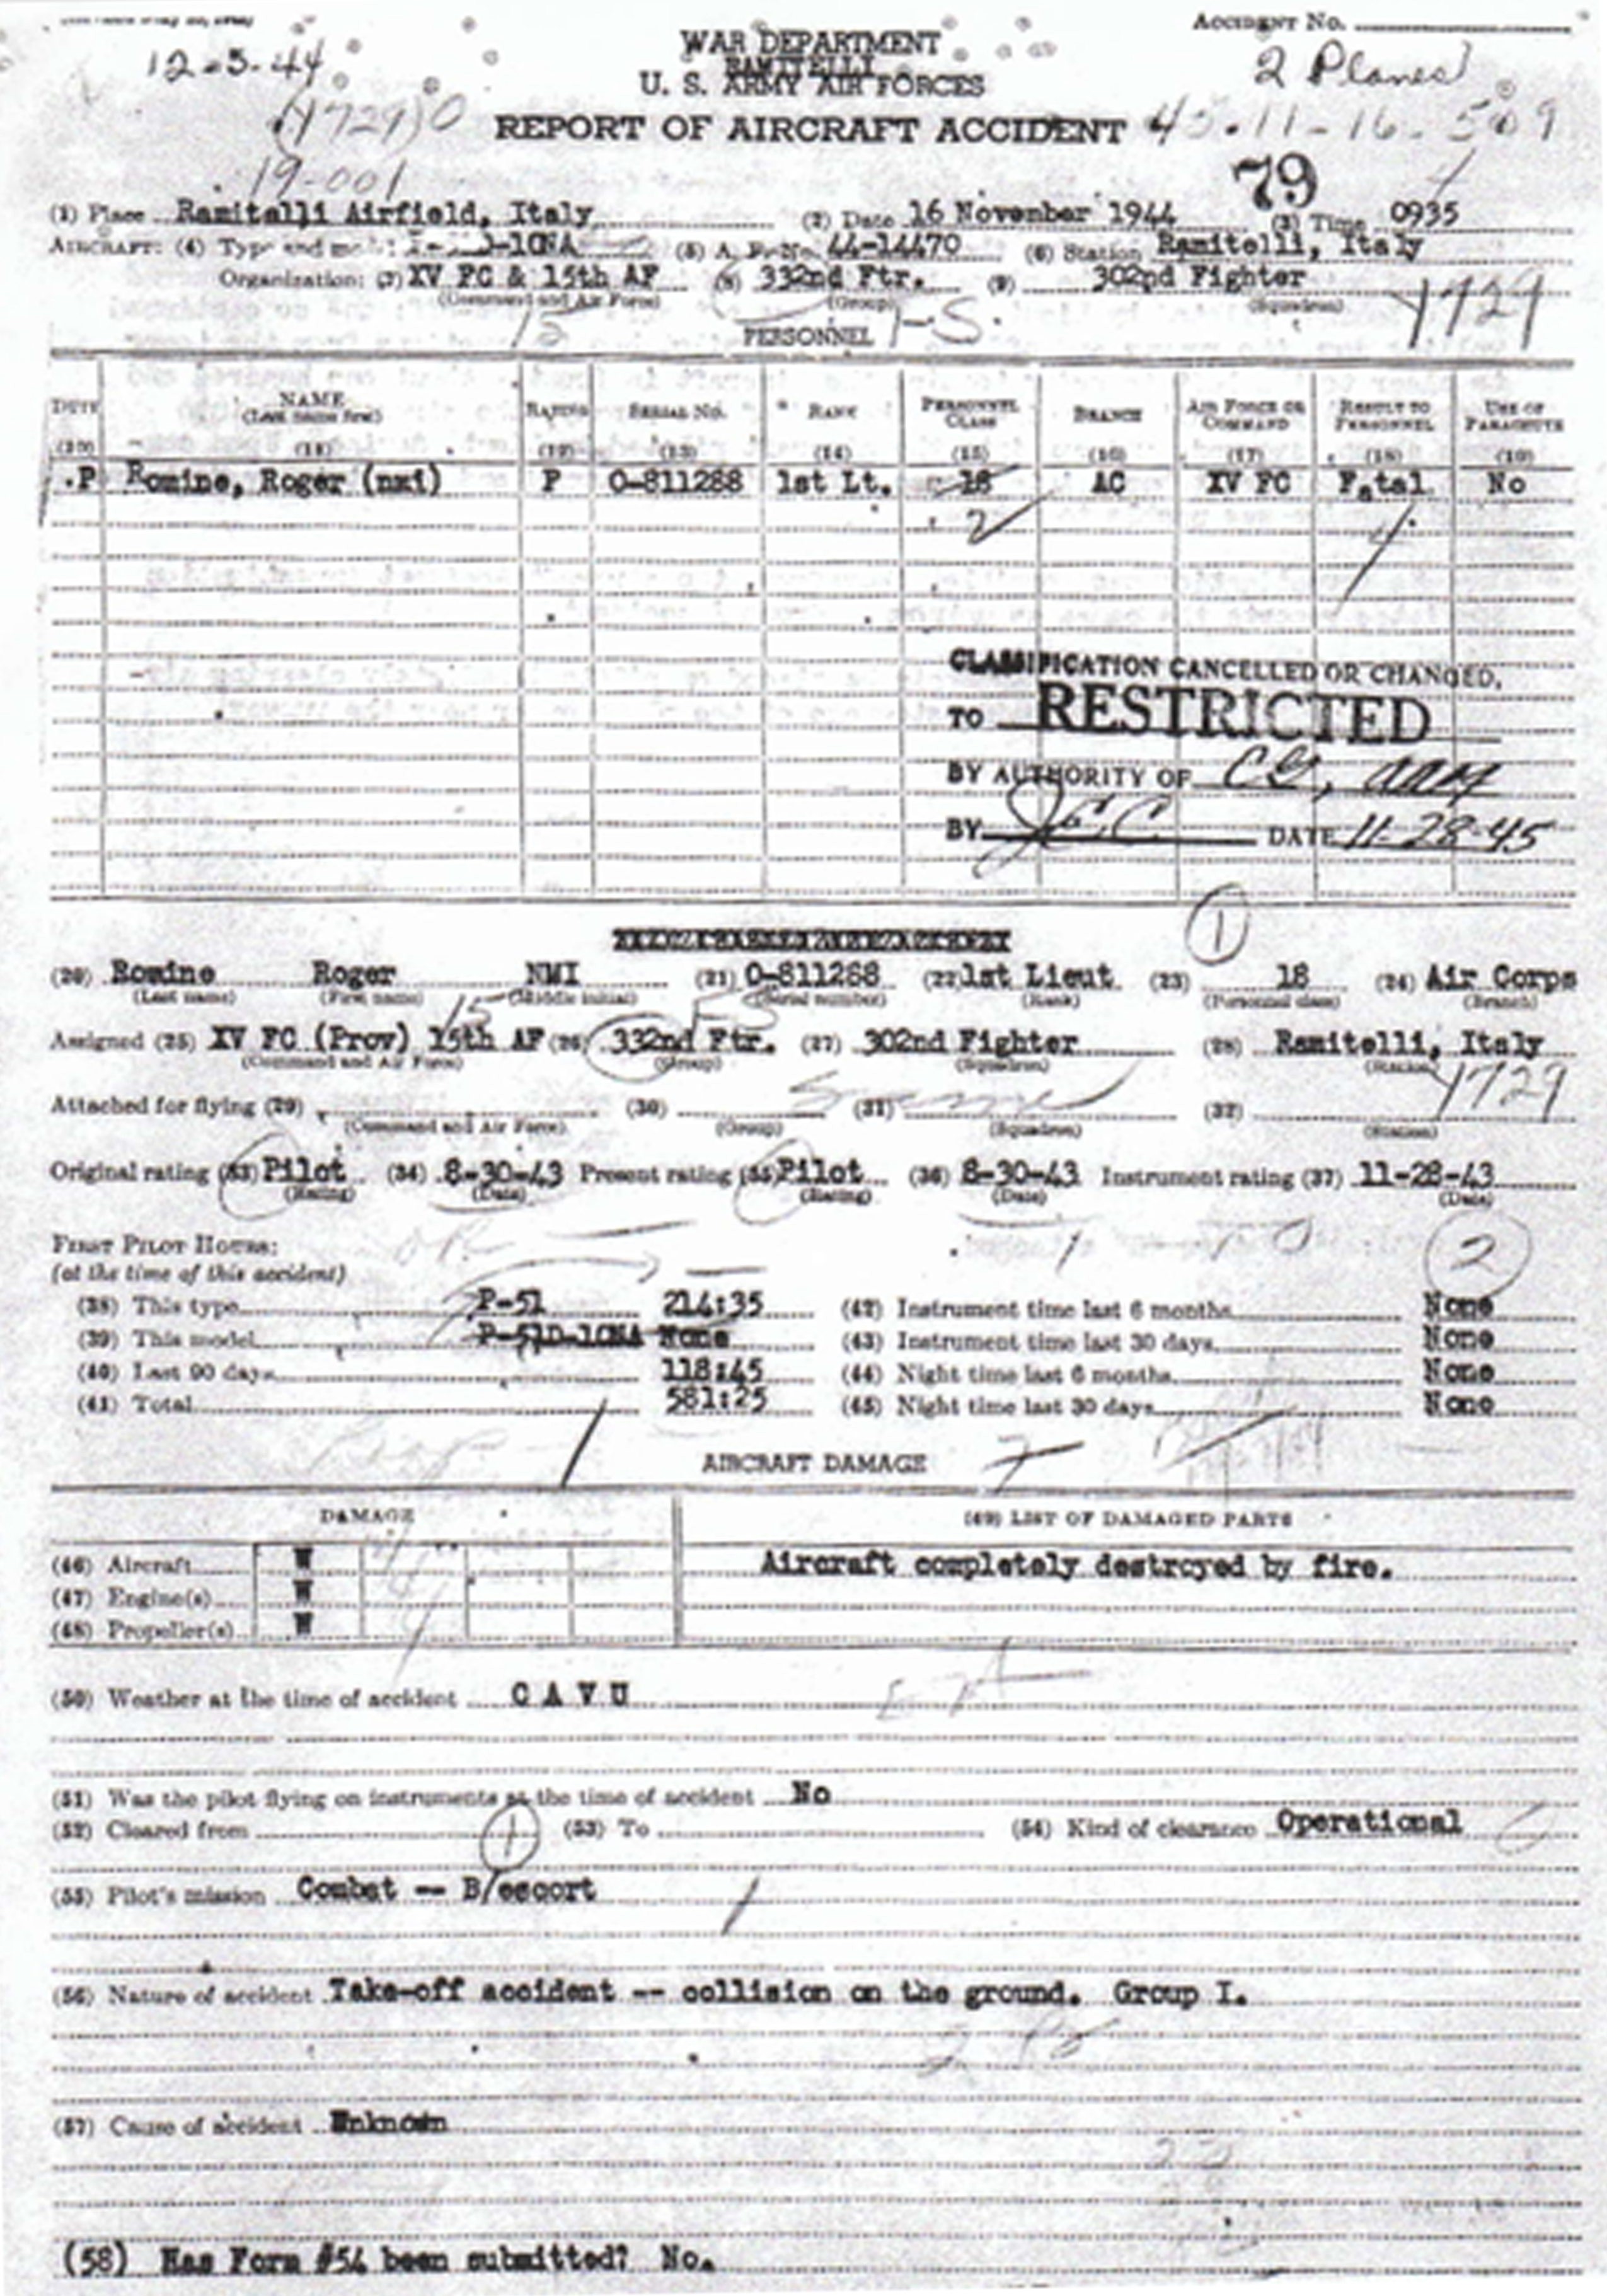 ACCIDENT No.
12-3-44
WAR DEPARTMENT
RAMITELLI
U. S. ARMY AIR FORCES
2 Planes
(1729)0
REPORT OF AIRCRAFT ACCIDENT 45-11-16-509
19-001
79
(1) Place Ramitelli Airfield, Italy (2) Date 16 November 1944 (3) Time 0935
AIRCRAFT: (4) Type and model -10NA (5) A. F. No. 44-14470 (6) Station Ramitelli, Italy
Organization: (7) XV FC & 15th AF (8) 332nd Ftr. (9) 302nd Fighter
(Command and Air Force) (Group) (Squadron)
15 PERSONNEL F-S 1729
DUTY NAME (Last name first) RATING SERIAL NO. RANK PERSONNEL CLASS BRANCH AIR FORCE OR COMMAND RESULT TO PERSONNEL USE OF PARACHUTE
(10) (11) (12) (13) (14) (15) (16) (17) (18) (19)
P Romine, Roger (nmi) P O-811288 1st Lt. 18 AC XV FC Fatal No
2
CLASSIFICATION CANCELLED OR CHANGED,
TO RESTRICTED
BY AUTHORITY OF CG, AAF
BY JCC DATE 11-28-45
1
(20) Romine Roger NMI (21) O-811288 (22) 1st Lieut (23) 18 (24) Air Corps
(Last name) (First name) (Middle initial) (Serial number) (Rank) (Personnel class) (Branch)
15 FS
Assigned (25) XV FC (Prov) 15th AF (26) 332nd Ftr. (27) 302nd Fighter (28) Ramitelli, Italy
(Command and Air Force) (Group) (Squadron) (Station)
Same 1729
Attached for flying (29) (30) (31) (32)
(Command and Air Force) (Group) (Squadron) (Station)
Original rating (33) Pilot (34) 8-30-43 Present rating (35) Pilot (36) 8-30-43 Instrument rating (37) 11-28-43
(Rating) (Date) (Rating) (Date) (Date)
FIRST PILOT HOURS:
(at the time of this accident)
2
(38) This type P-51 214:35 (42) Instrument time last 6 months None
(39) This model P-51D-10NA None (43) Instrument time last 30 days None
(40) Last 90 days 118:45 (44) Night time last 6 months None
(41) Total 581:25 (45) Night time last 30 days None
AIRCRAFT DAMAGE
DAMAGE (49) LIST OF DAMAGED PARTS
(46) Aircraft W Aircraft completely destroyed by fire.
(47) Engine(s) W
(48) Propeller(s) W
(50) Weather at the time of accident C A V U
(51) Was the pilot flying on instruments at the time of accident No
(52) Cleared from 1 (53) To (54) Kind of clearance Operational
(55) Pilot's mission Combat -- B/escort
(56) Nature of accident Take-off accident -- collision on the ground. Group I.
(57) Cause of accident Unknown
(58) Has Form #54 been submitted? No.